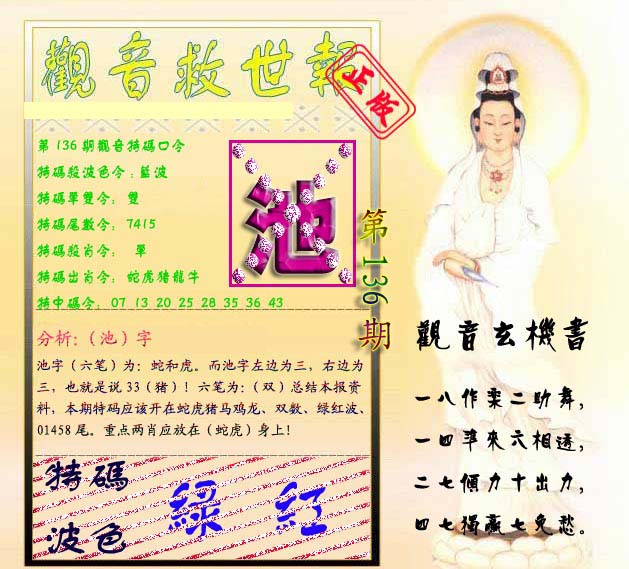 觀音救世報
正版
第136期觀音特碼口令
特碼殺波色令：藍波
特碼單雙令： 雙
特碼尾數令： 7415
特碼殺肖令： 單
特碼出肖令： 蛇虎猪龍牛
特中碼令： 07 13 20 25 28 35 36 43
池
第136期
分析:（池）字
池字（六笔）为：蛇和虎。而池字左边为三，右边为
三，也就是说 33（猪）！六笔为：（双）总结本报资
料，本期特码应该开在蛇虎猪马鸡龙、双数、绿红波、
01458 尾。重点两肖应放在（蛇虎）身上！
特碼
波色
綠 紅
觀音玄機書
一八作栾二助舞，
一四準來六相逢，
二七傾力十出力，
四七獨贏七免愁。